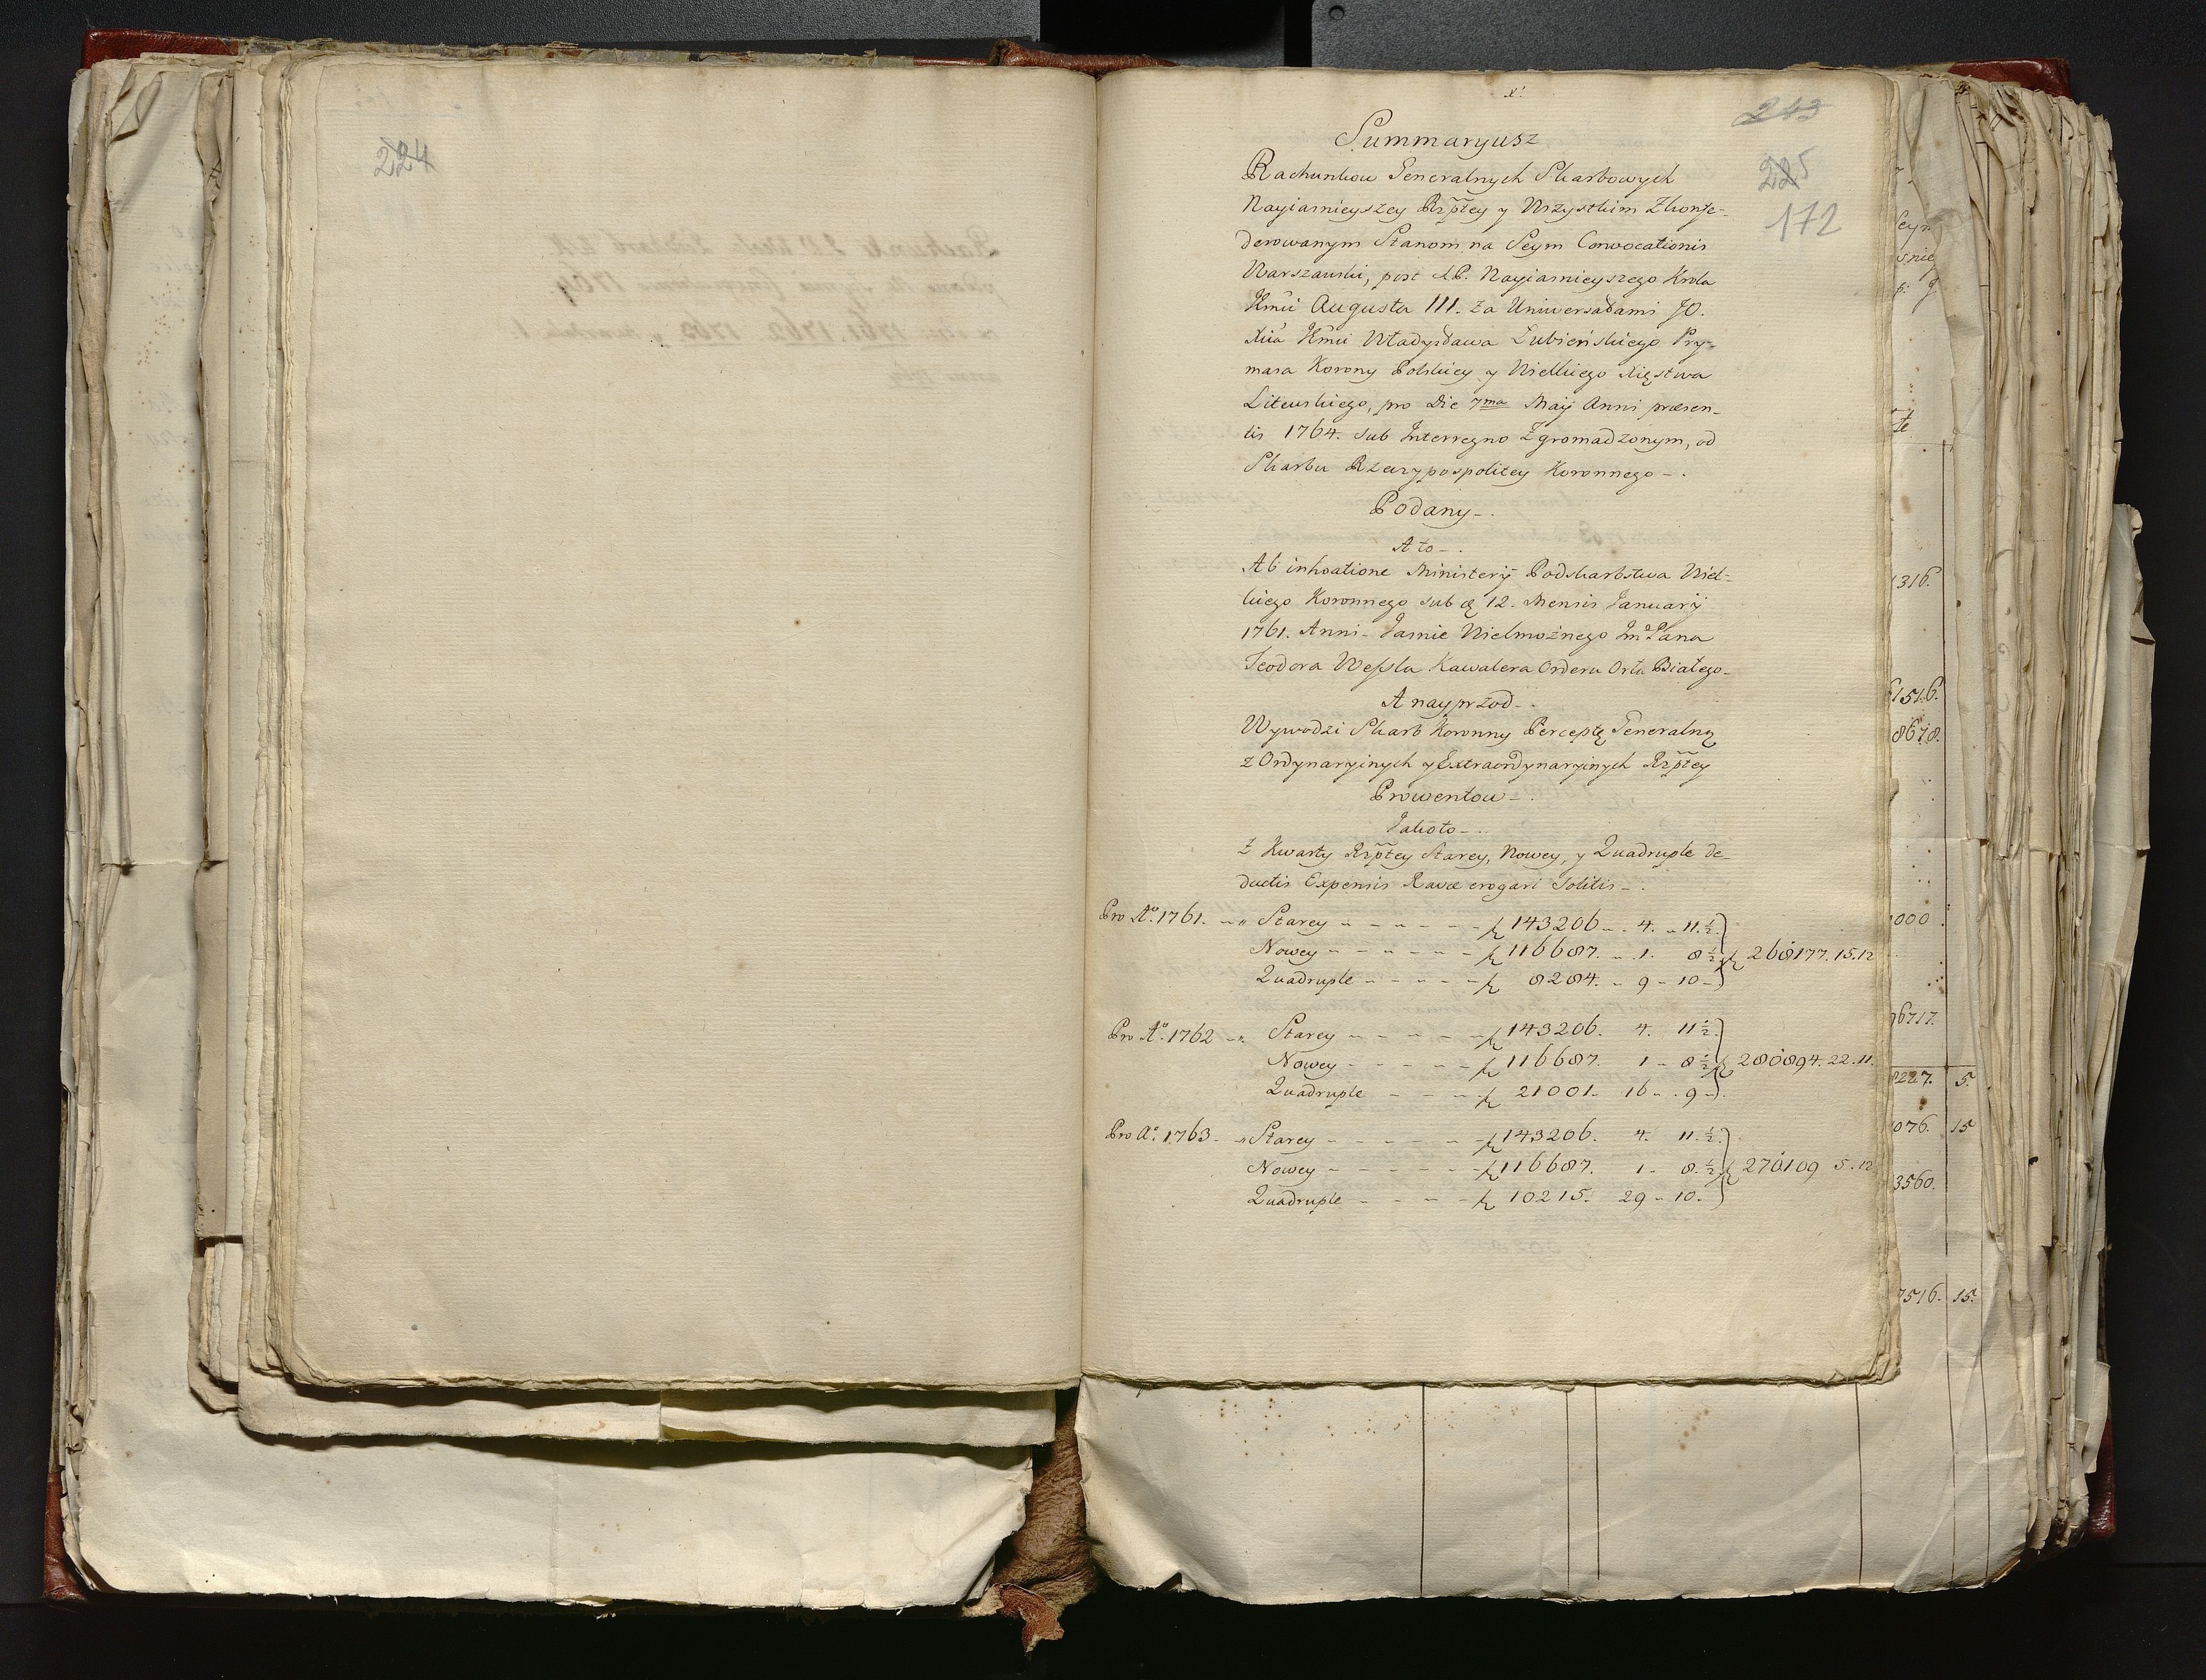 224
x.
243
Summaryusz
225
172
Rachunkow Generalnych Skarbowych
Nayiasnieyszey Rzptey y Wszystkim Zkonfe-
derowanym Stanom na Seym Convocationis
Warszawski, post Nayiasnieyszego Krola
Jmci Augusta III. za Uniwersałami JO.
Xcia Jmci Władysława Łubieńskiego Pry-
masa Korony Polskiey y Wielkiego Xięstwa
Litewskiego, pro die 7ma Maij Anni præsen-
tis 1764. sub Interregno Zgromadzonym, od
Skarbu Rzeczypospolitey Koronnego - .
Podany - .
A to - .
Ab inhoatione Ministerij Podskarbstwa Wiel-
kiego Koronnego sub 12. Mensis Januarij
1761. Anni - Jasnie Wielmożnego Jmo Pana
Teodora Wessla Kawalera Orderu Orła Białego -
A nayprzod - .
Wywodzi Skarb Koronny Perceptę Generalną
z Ordynaryinych y Extraordynaryinych Rzptey
Prowentow - .
Jakoto - .
z Kwarty Rzptey Starey, Nowey, y Quadruple de-
ductis Expensis Ravæ erogari solitis - .
Pro Ao. 1761. - " Starey - - - - - 143206 - . 4. - 11. ½
Nowey - - - - - 116687. - . 1. 8 ½ 268177. 15. 12
Quadruple - - - - 8284. - 9 - 10 -
Pro Ao. 1762 - " Starey - - - - - 143206. 4. 11 ½
Nowey - - - - - 116687. 1 - 8 ½ 280894. 22. 11.
Quadruple - - - 21001 - 16 - . 9 -
Pro Ao. 1763 - " Starey - - - - - 143206. 4. 11. ½
Nowey - - - - - 116687. 1 - 8. ½ 270109 5. 12
Quadruple - - - - 10215. 29 - 10.
316.
1516.
8678.
000
6717.
227. 5.
076. 15
3560.
7516. 15.